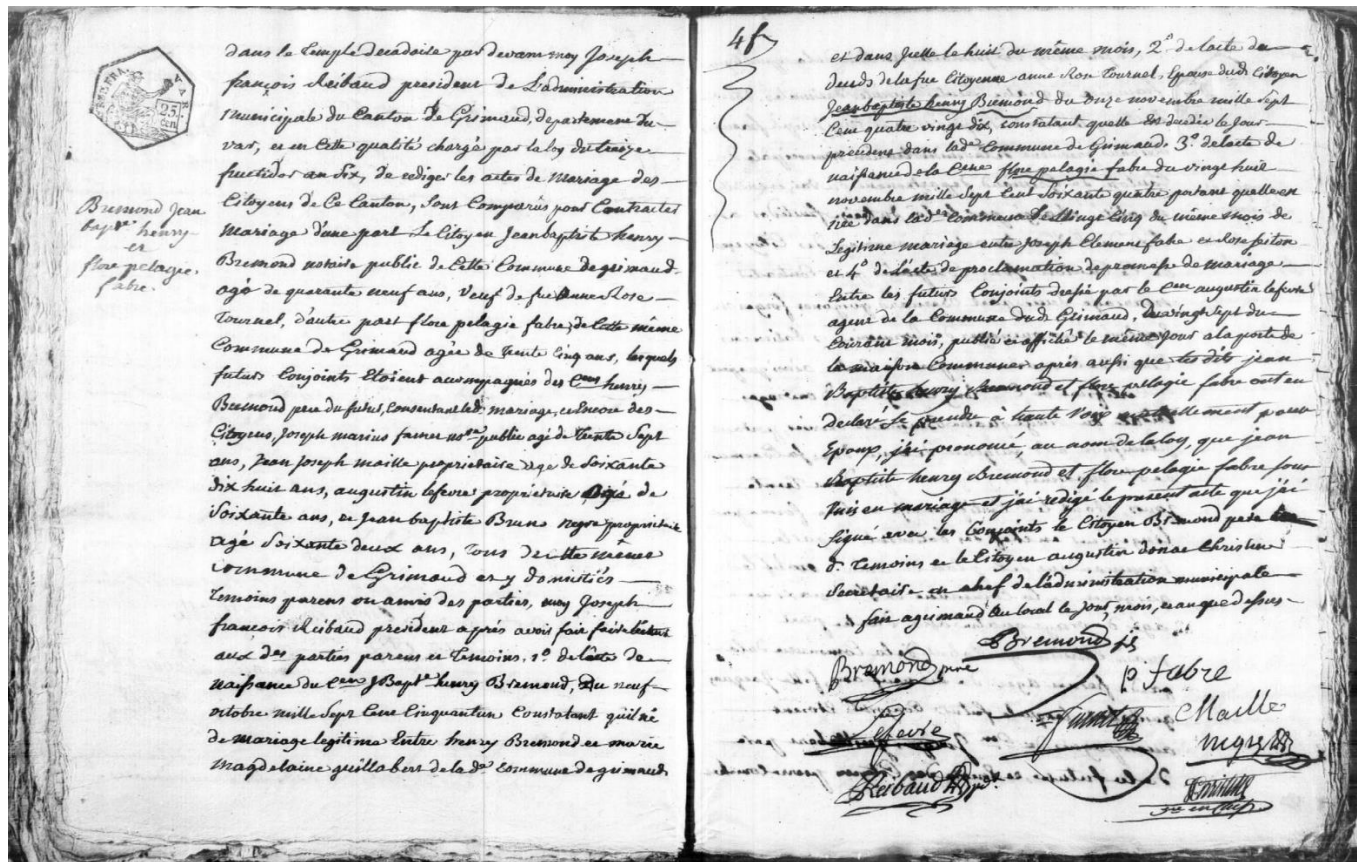 dans le temple decadaire par devant moy Joseph
françois Reibaud president de L'administration
municipale du Canton de Grimaud, departement du
var, et en Cette qualité chargé par la loy du treize
fructidor an six, de rediger les actes de Mariage des
Citoyens de Ce Canton, sont Comparus pour Contracter
Mariage d'une part Le Citoyen Jeanbaptiste henry
Bremond notaire public de Cette Commune de grimaud
agé de quarante neuf ans, veuf de fue anne Rose
Tournel, d'autre part flore pelagie fabre, de Cette même
Commune de Grimaud agée de Trente Cinq ans, lesquels
futurs Conjoints Etoient accompagnés des Cens henry
Bremond pere du futur, Consentant led. mariage, et Encore des
Citoyens, Joseph marius public agé de Trente Sept
ans, Jean Joseph Maille proprietaire age de Soixante
dix huit ans, augustin lefevre proprietaire agé de
Soixante ans, et Jean baptiste negre proprietaire
agé Soixante deux ans, Tous de Cette même
Commune de Grimaud et y domiciliés
Temoins parens ou amis des parties, moy Joseph
françois Reibaud president après avoir fait faire lecture
aux des parties parens et Temoins, 1° de l'acte de
naissance du Cen J Bapte henry Bremond, du neuf
octobre mille Sept Cent Cinquantun Constatant quil né
de Mariage legitime Entre henry Bremond et marie
Magdelaine guillabert de lad° commune de grimaud
Bremond Jean
bapte henry
et
flore pelagie
fabre.
25
Cen
VAR
et dans Icelle le huit du même mois, 2° de l'acte de
deceds de la fue Citoyenne anne Rose Tournel, Epouse dud. Citoyen
Jeanbaptiste henry Bremond du onze novembre mille Sept
Cent quatre vingt dix, constatant quelle Est decedée le Jour
precedent dans lade Commune de Grimaud. 3° de l'acte de
naissance de la Cene flore pelagie fabre du vingt huit
novembre mille Sept Cent Soixante quatre portant quelle est
née dans lade Commune le vingt Cinq du même mois de
legitime mariage entre Joseph Clement fabre et Rose
et 4° de l'acte de proclamation de promesse de mariage
Entre les futurs Conjoints dressé par le Cen augustin lefevre
agent de la Commune dud. Grimaud, du vingt Sept du
Courant mois, publié et affiché le même Jour a la porte de
la maison Commune, après aussi que les dits jean
Baptiste henry Bremond et flore pelagie fabre ont eu
declaré Se prendre à haute voix mutuellement pour
Epoux, j'ai prononcé au nom de la loy, que jean
Baptiste henry Bremond et flore pelagie fabre sont
unis en mariage et j'ai redigé le present acte que j'ai
signé avec les Conjoints le Citoyen Bremond pere
Temoins et le Citoyen augustin
Secretaire en chef de l'administration municipale
fait a grimaud au local le Jour, mois, et an que dessus
Bremond fs
Bremond pere
p fabre
Maille
Lefevre
negre
Reibaud pdt.